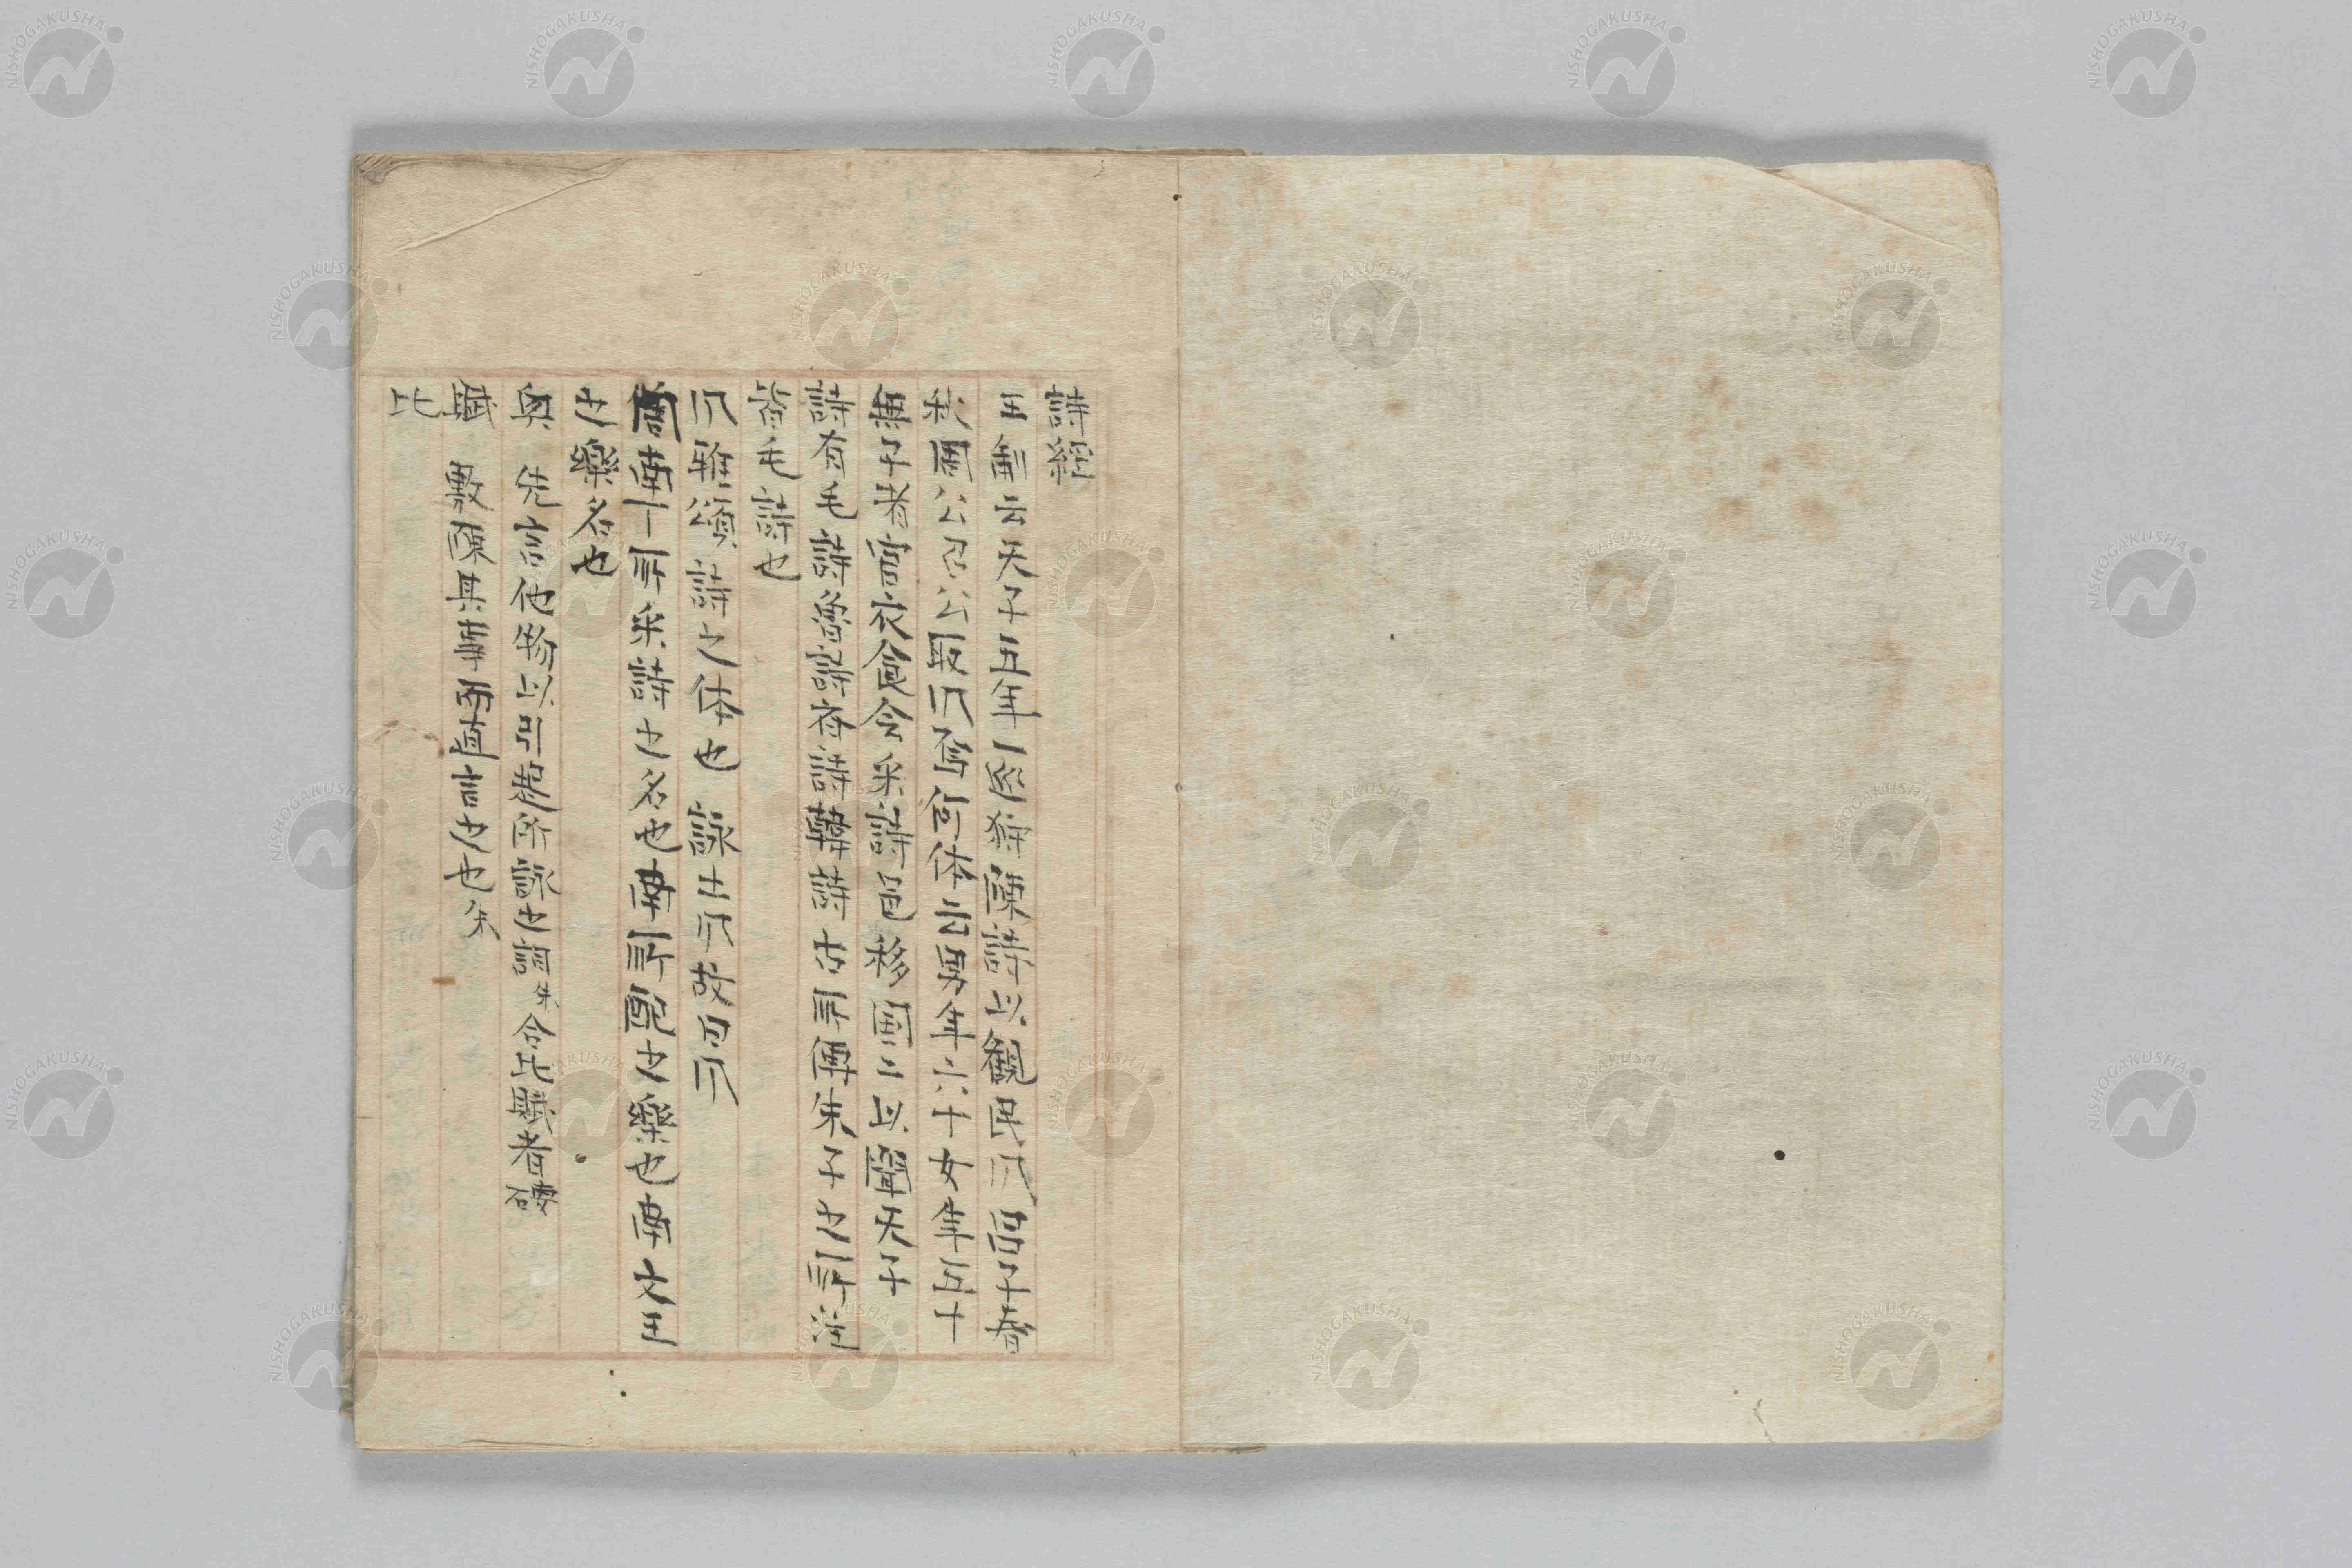 詩經
王制云天子五年一巡狩陳詩以觀民風 呂子者
周公召公取風 焉 体云男年六十女年五十
無子者官衣食令采詩邑移國二以聞天子
詩有毛詩魯詩斉詩韓詩 古所傳朱子之所注
皆毛詩也
風雅頌 詩之体也 詠土風故曰風
周南 一所采詩之名也南所配之樂也南文王
之樂名也
興 先言他物以引起所詠之詞朱 合比賦者
賦 敷陳其事而直言之也朱
比
NISHOGAKUSHA